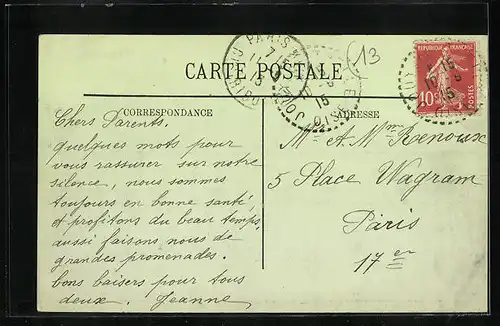 13
CARTE POSTALE
CORRESPONDANCE
ADRESSE
REPUBLIQUE FRANÇAISE
10c
POSTES
PARIS
JOUY
OISE
Chers Parents.
Quelques mots pour
vous rassurer sur notre
silence, nous sommes
toujours en bonne santé,
et profitons du beau temps,
aussi faisons nous de
grandes promenades.
bons baisers pour tous
deux. Jeanne
Mr & Mme Renoux
5 Place Wagram
Paris
17er